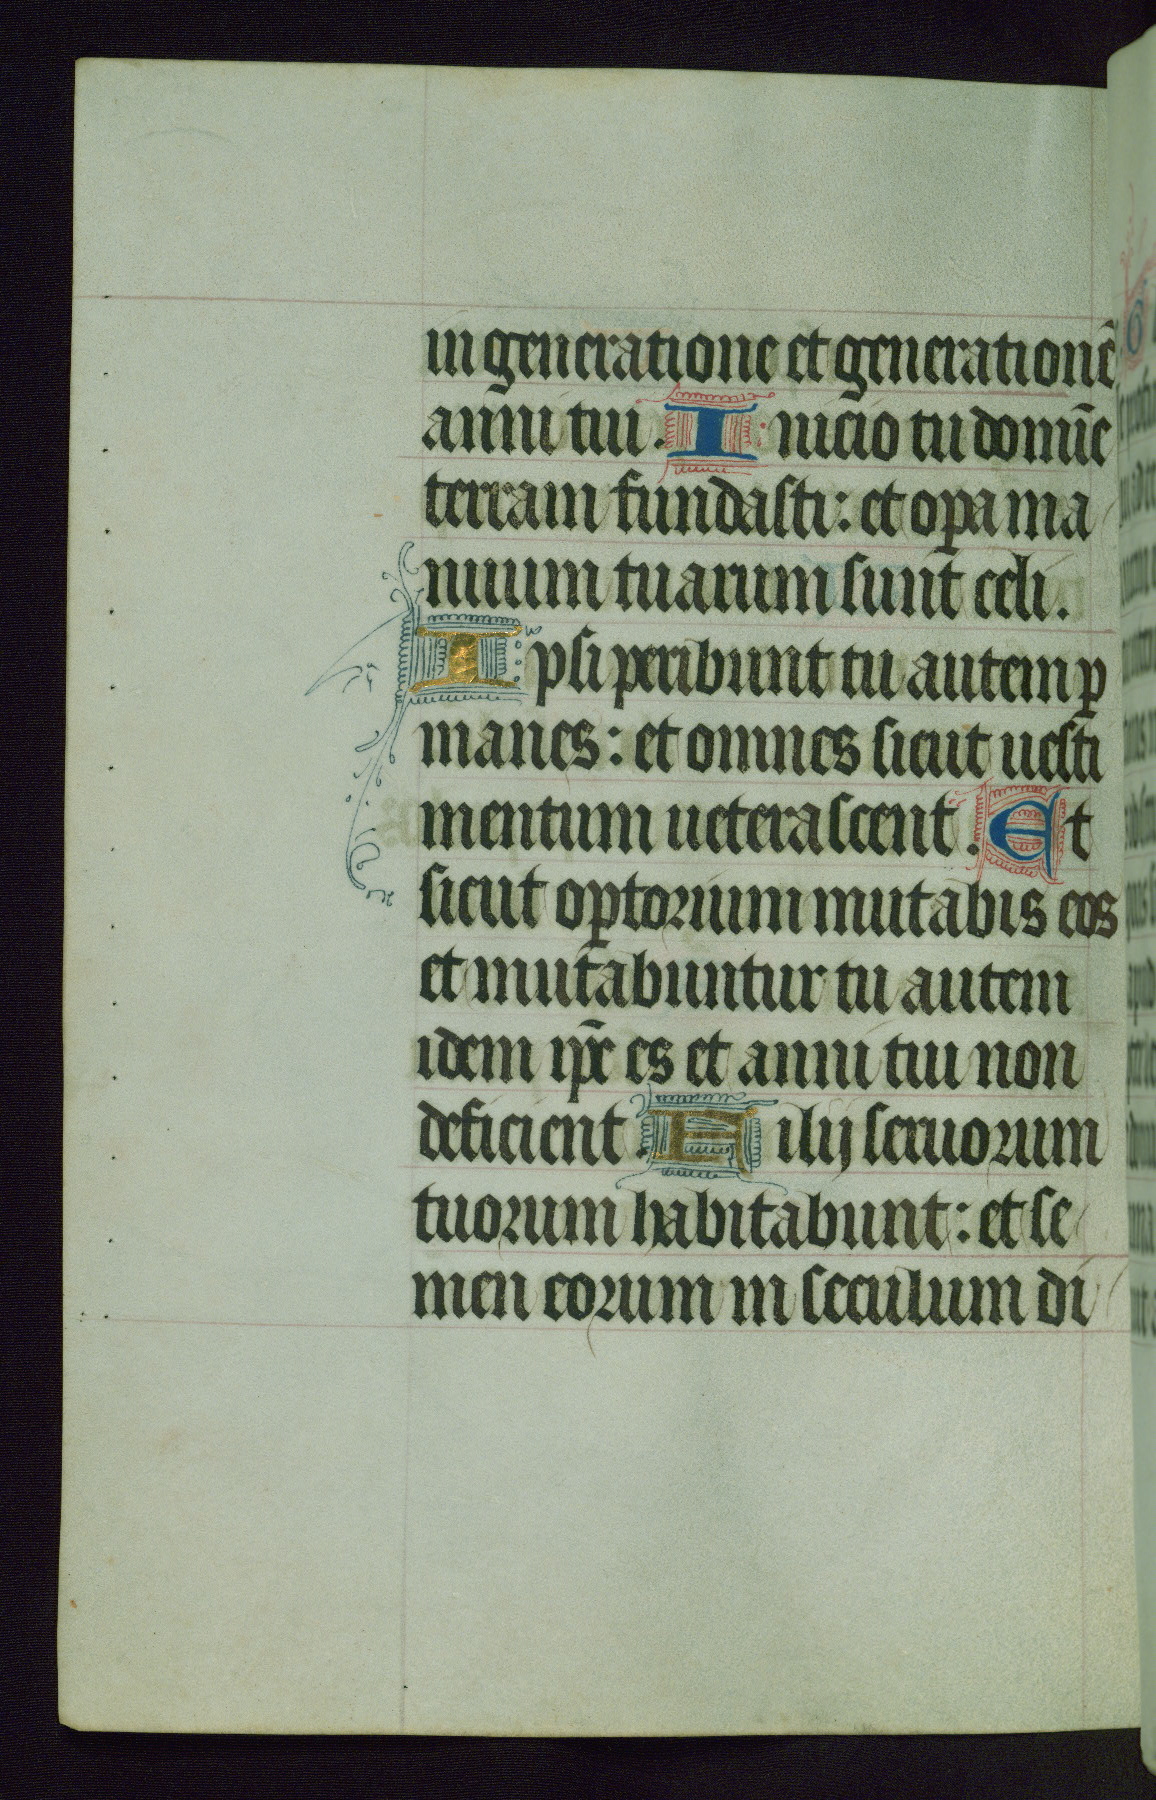 in generatione et generationē
anni tui. Inicio tu domīe
terram fundasti: et oꝑa ma
nuum tuarum sunt celi.
Ipsi peribunt tu autem ꝑ
manes: et omnes sicut uesti
mentum ueterascent. Et
sicut oꝑtorium mutabis eos
et mutabuntur tu autem
idem ip̄e es et anni tui non
deficient. Filij seruorum
tuorum habitabunt: et se
men eorum in seculum di